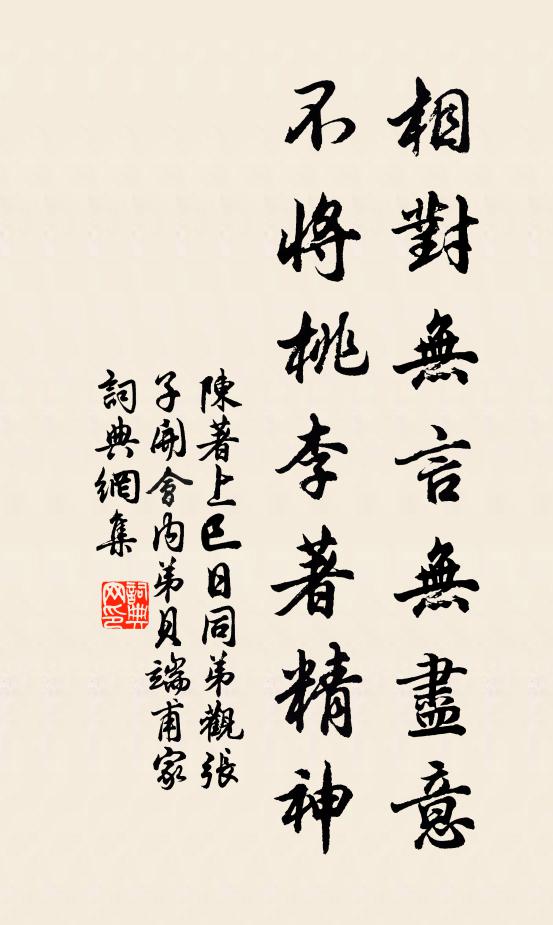 相對無言無盡意
不將桃李著精神
陳著上巳日同弟觀張
子開會內弟貝端甫家
詞典網集
詞典
网印